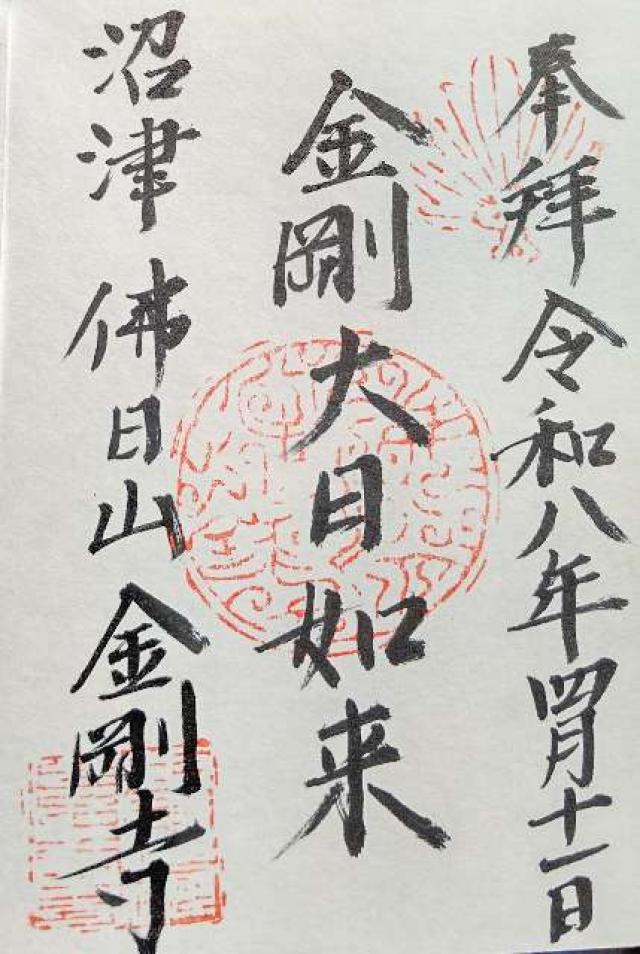 奉拝 令和八年四月十一日
金剛大日如来
沼津 佛日山 金剛寺